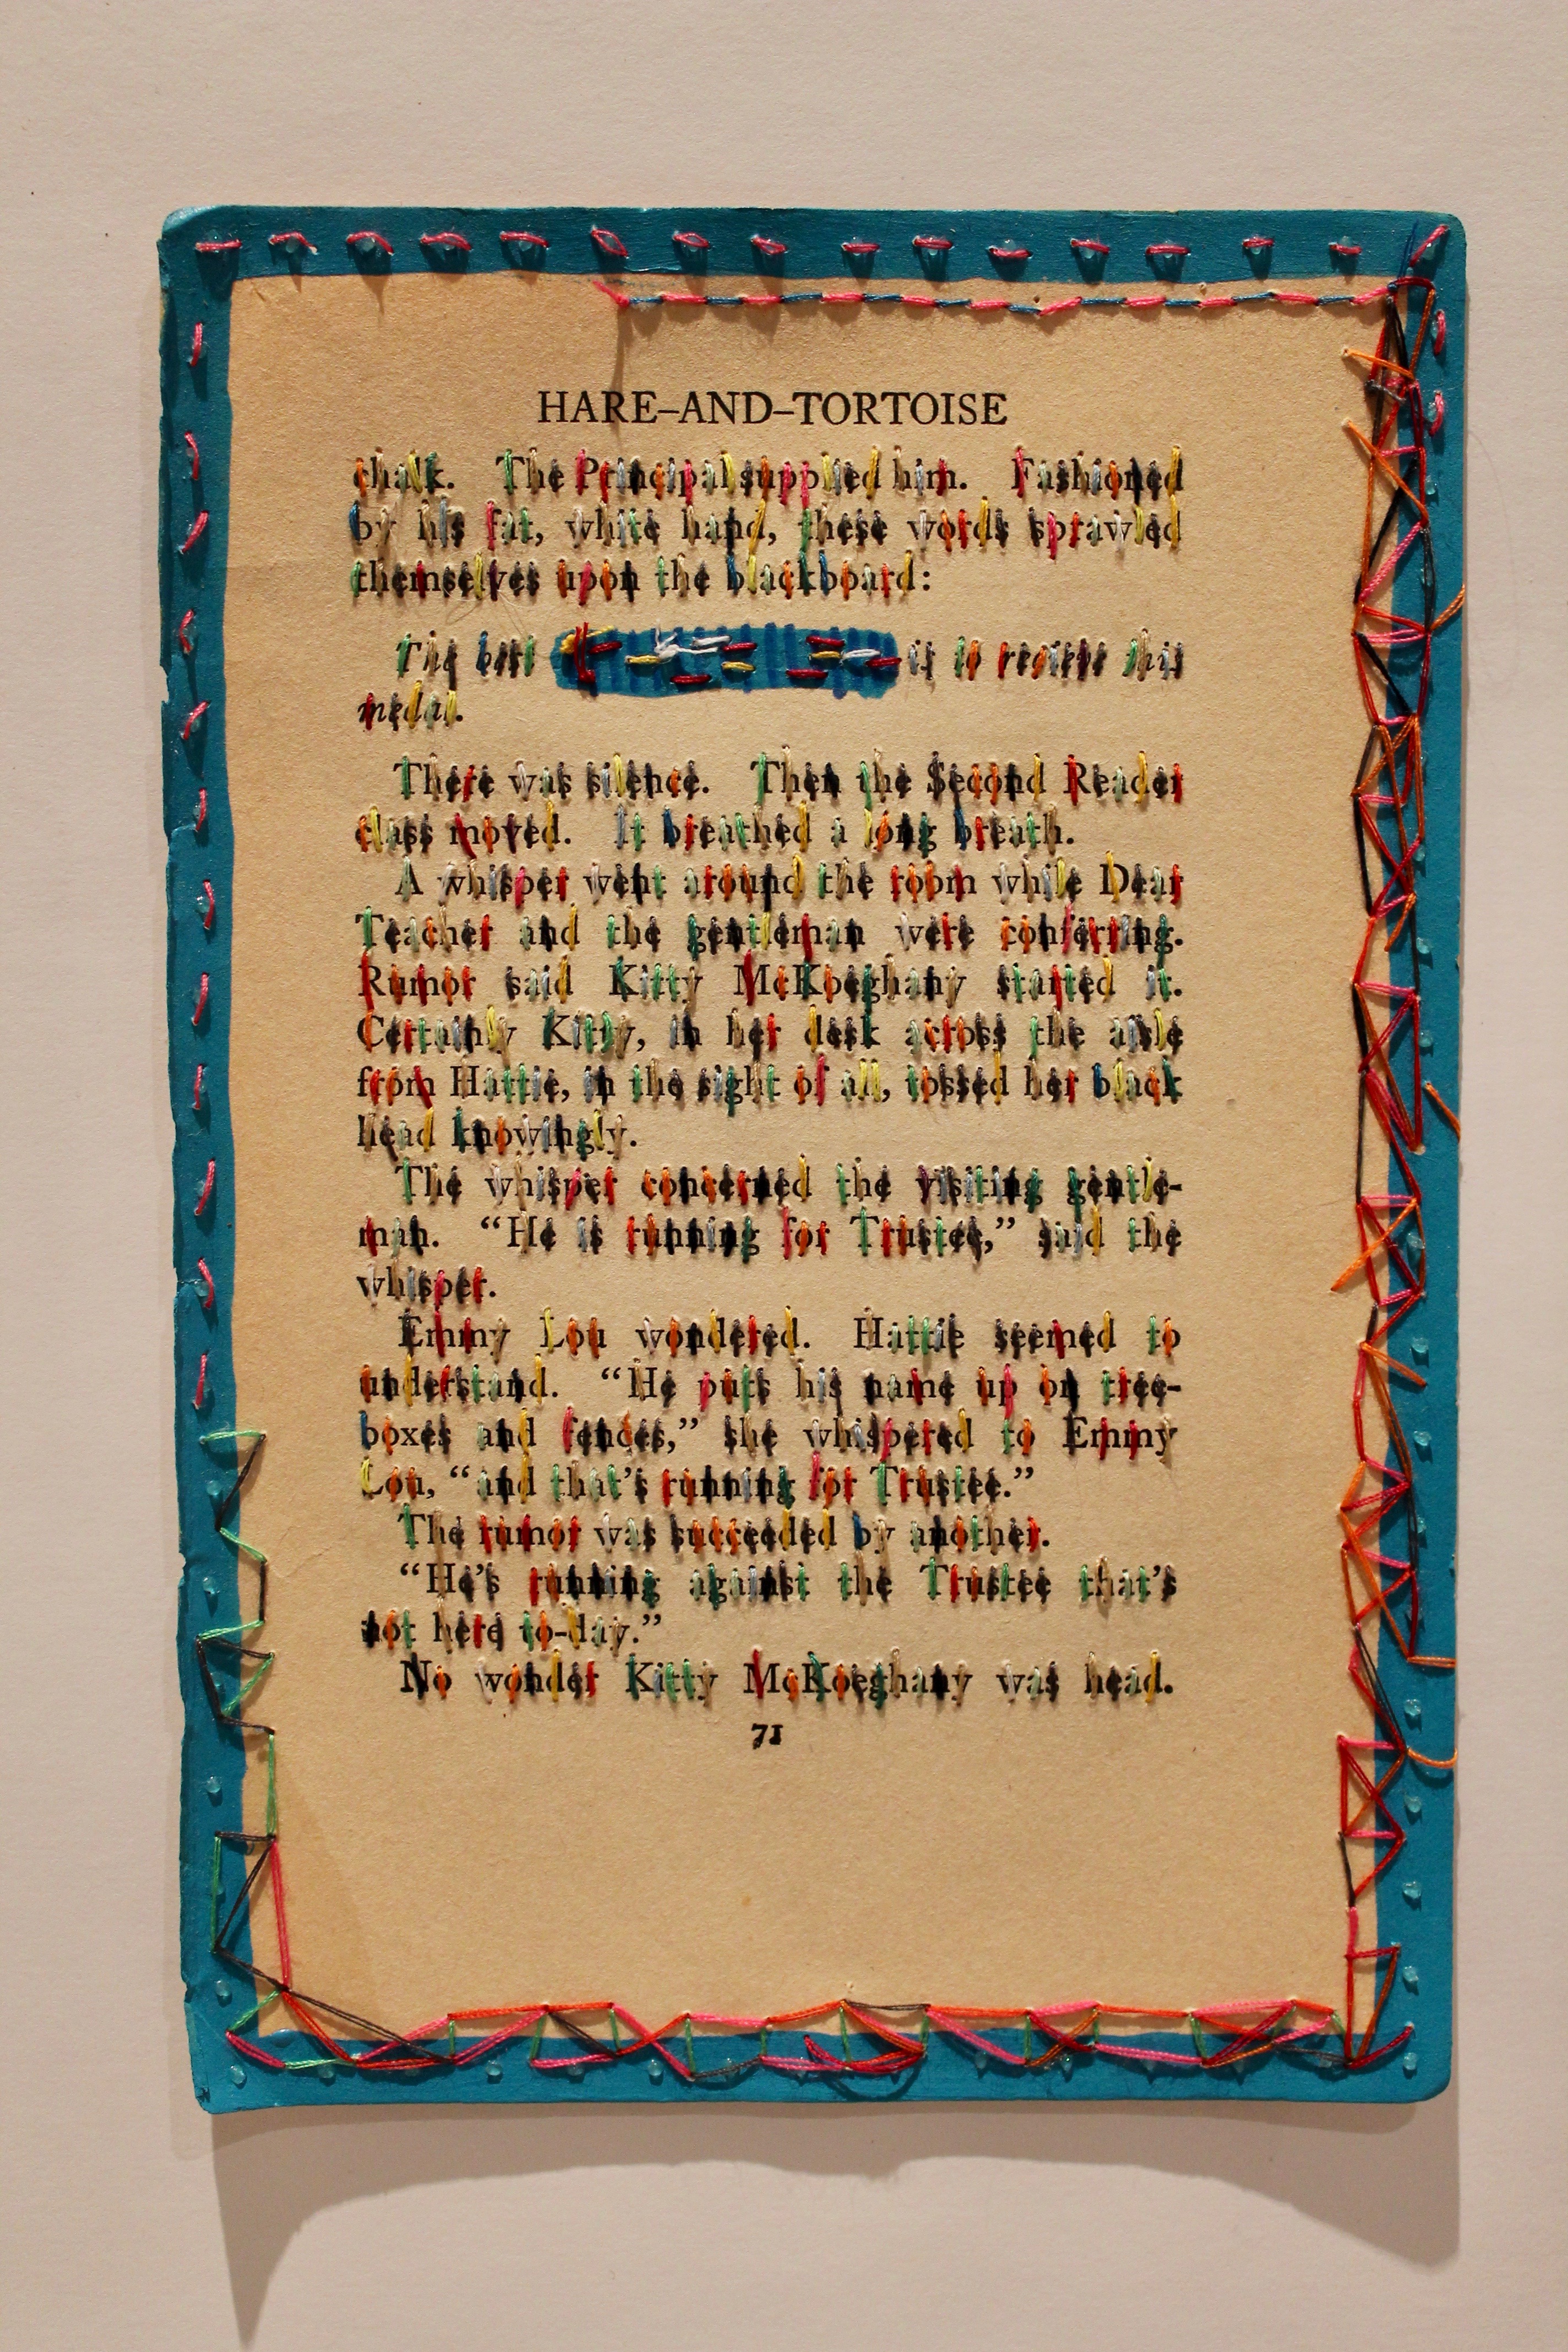 HARE–AND–TORTOISE
chalk. The Principal supplied him. Fashioned
by his fat, white hand, these words sprawled
themselves upon the blackboard:
The best is to receive this
medal.
There was silence. Then the Second Reader
class moved. It breathed a long breath.
A whisper went around the room while Dear
Teacher and the gentleman were conferring.
Rumor said Kitty McKoeghany started it.
Certainly Kitty, in her desk across the aisle
from Hattie, in the sight of all, tossed her black
head knowingly.
The whisper concerned the visiting gentle-
man. “He is running for Trustee,” said the
whisper.
Emmy Lou wondered. Hattie seemed to
understand. “He puts his name up on tree-
boxes and fences,” she whispered to Emmy
Lou, “and that’s running for Trustee.”
The rumor was succeeded by another.
“He’s running against the Trustee that’s
not here to-day.”
No wonder Kitty McKoeghany was head.
71